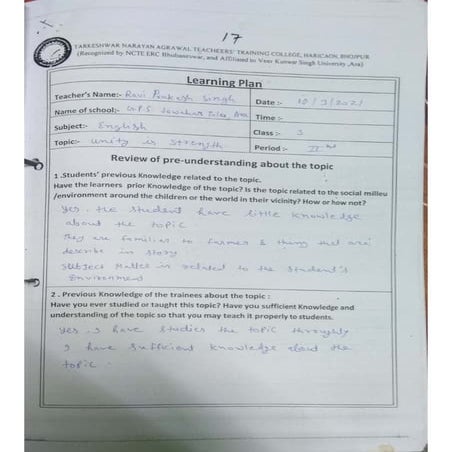 17
TARKESHWAR NARAYAN AGRAWAL TEACHEERS' TRAINING COLLEGE, HARIGAON, BHOJPUR
(Recognized by NCTE ERC Bhubaneswar, and Affiliated to Veer Kunwar Singh University ,Ara)
Learning Plan
Teacher's Name:- Ravi Prakash Singh
Date :- 10/3/2021
Name of school:- Ara
Time :-
Subject:- English
Class :- 3
Topic:- unity is strength
Period :- II nd
Review of pre-understanding about the topic
1 .Students' previous Knowledge related to the topic.
Have the learners prior Knowledge of the topic? Is the topic related to the social milleu
/environment around the children or the world in their vicinity? How or how not?
yes, the student have little knowledge
about the topic
They are familiar to farmer & thing that are
describe in story
Subject Matter is related to the student's
Environment
2 . Previous Knowledge of the trainees about the topic :
Have you ever studied or taught this topic? Have you sufficient Knowledge and
understanding of the topic so that you may teach it properly to students.
yes I have studies the topic throughly
I have sufficient knowledge about the
topic.